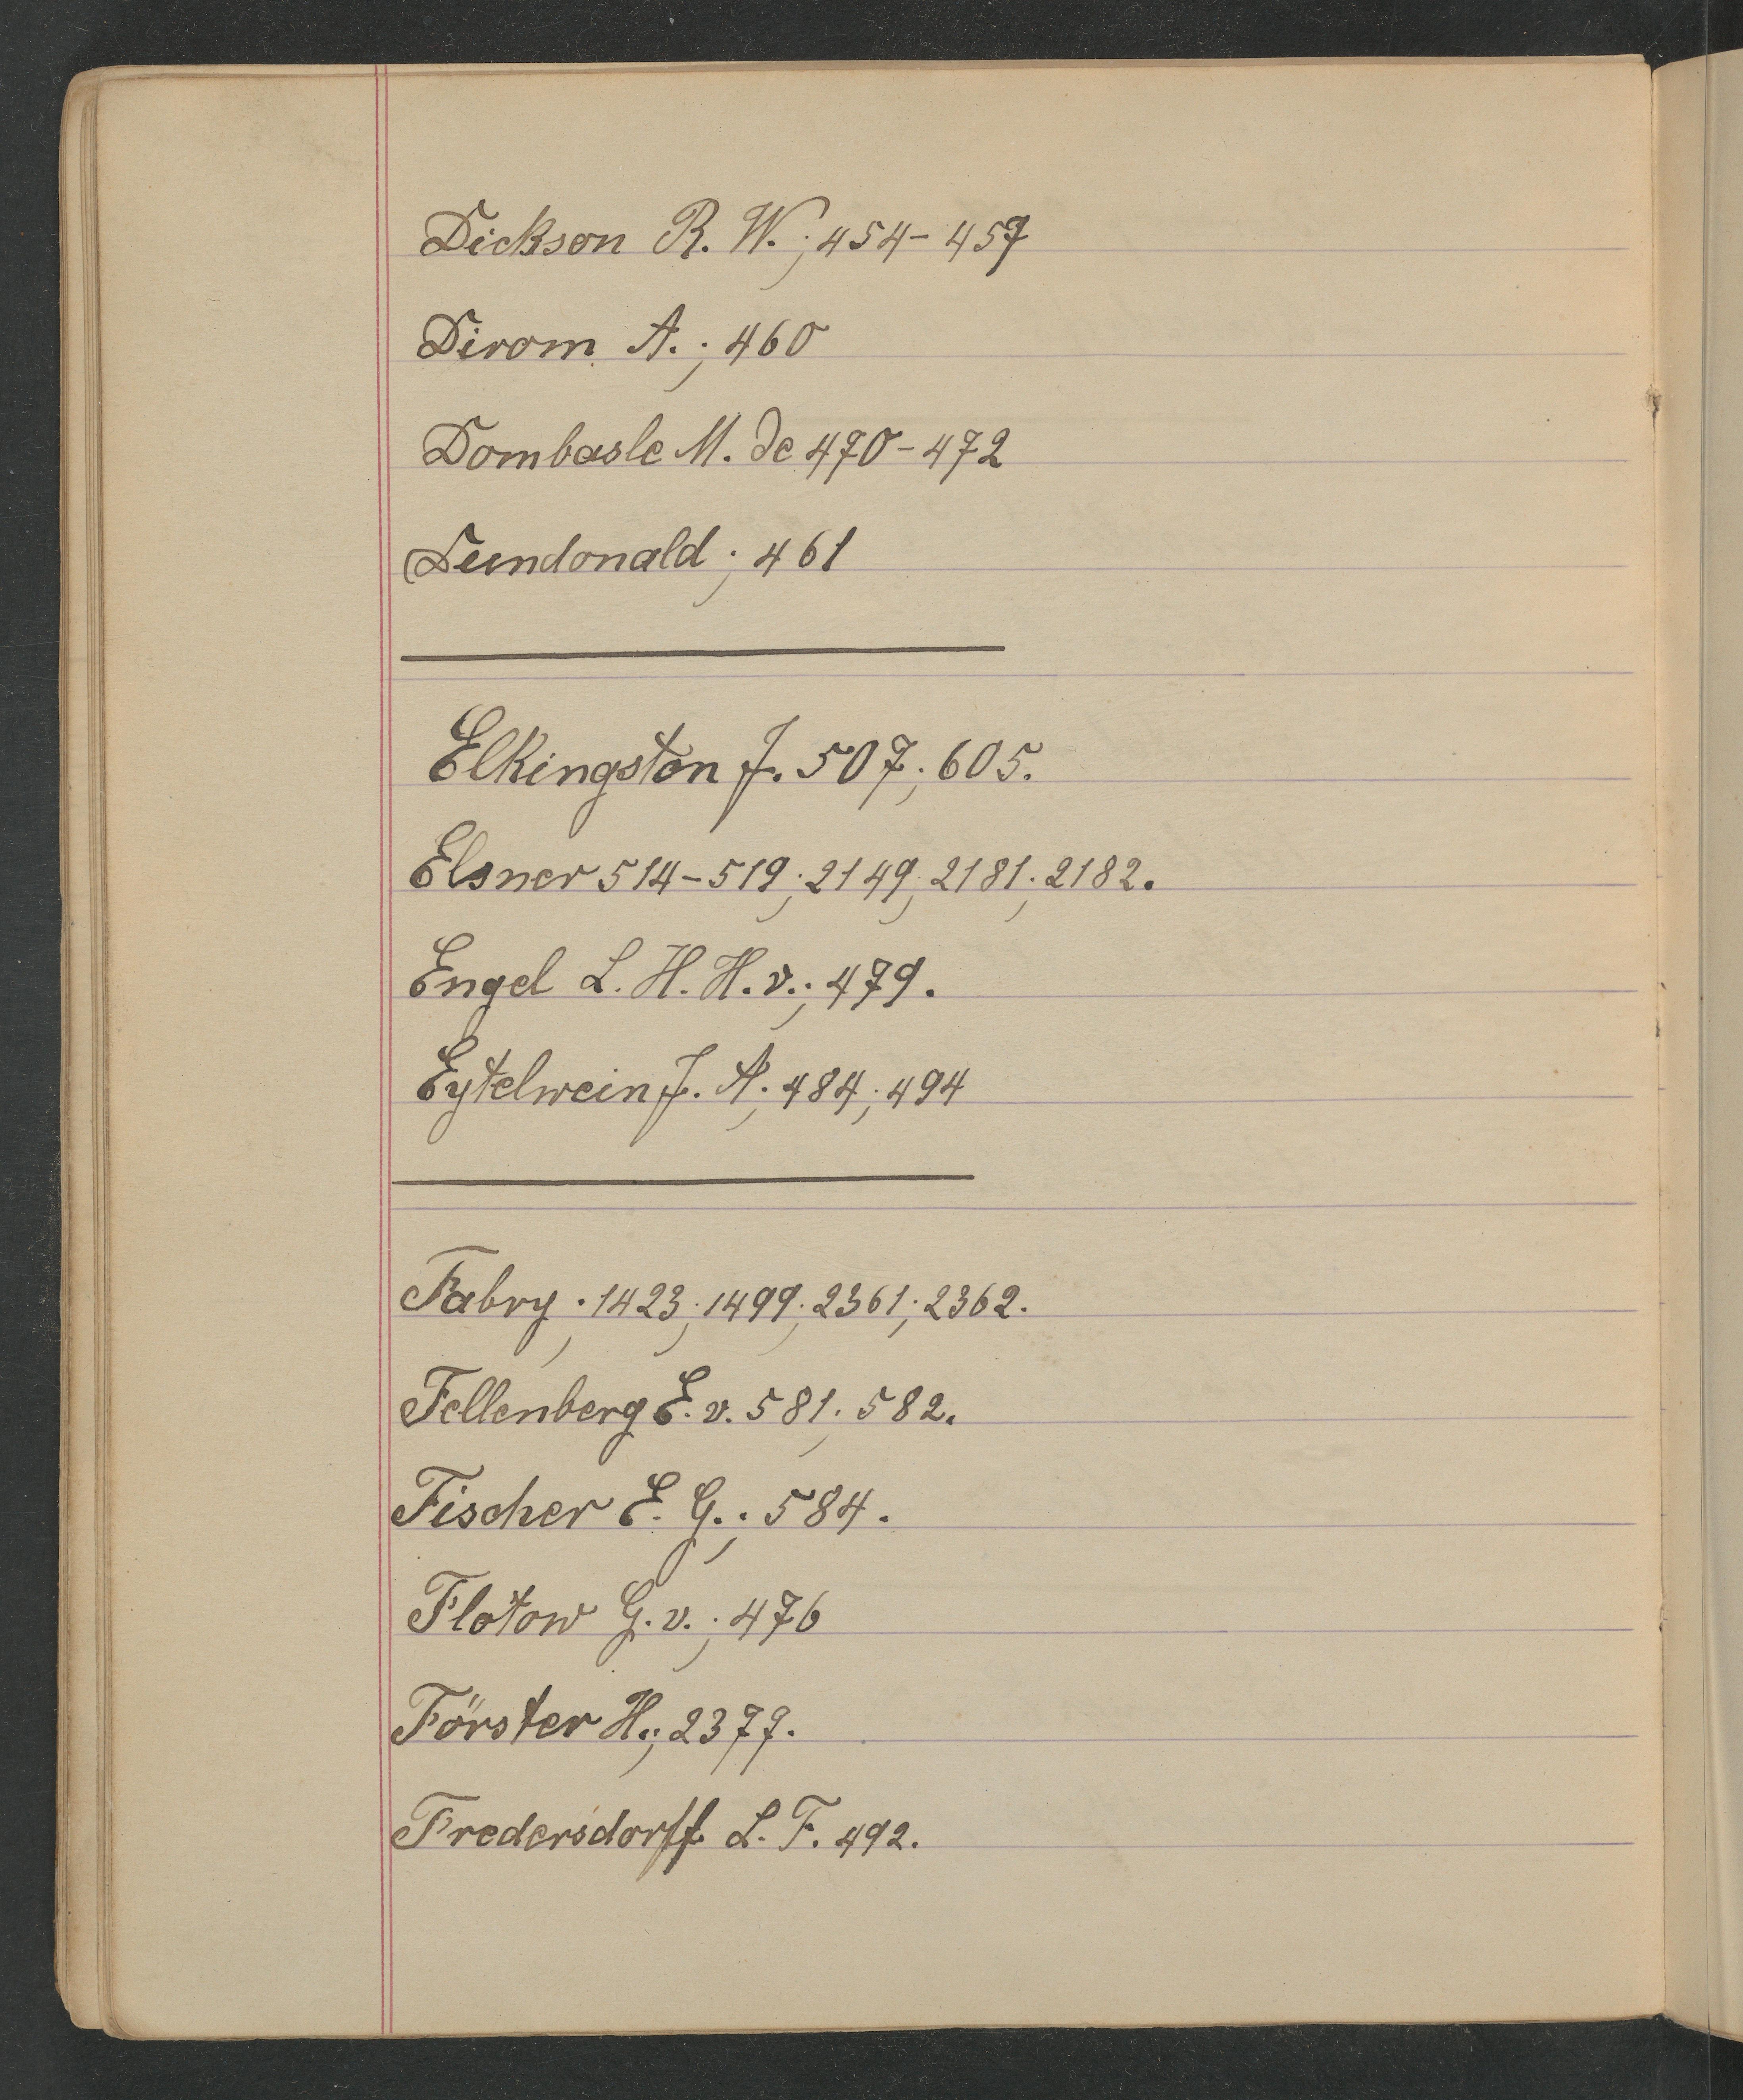 Dickson R. W.; 454-457
Dirom A.; 460
Dombasle M. de 470-472
Dundonald; 461
Elkingston J. 507; 605.
Elsner 514-519; 2149; 2181; 2182.
Engel L. H. H. v.; 479.
Eytelwein J. A; 484; 494
Fabry; 1423; 1499; 2361; 2362.
Fellenberg E. v. 581; 582.
Fischer E. G.; 584.
Flotow G. v.; 476
Förster H.; 2377.
Fredersdorff L. F. 492.